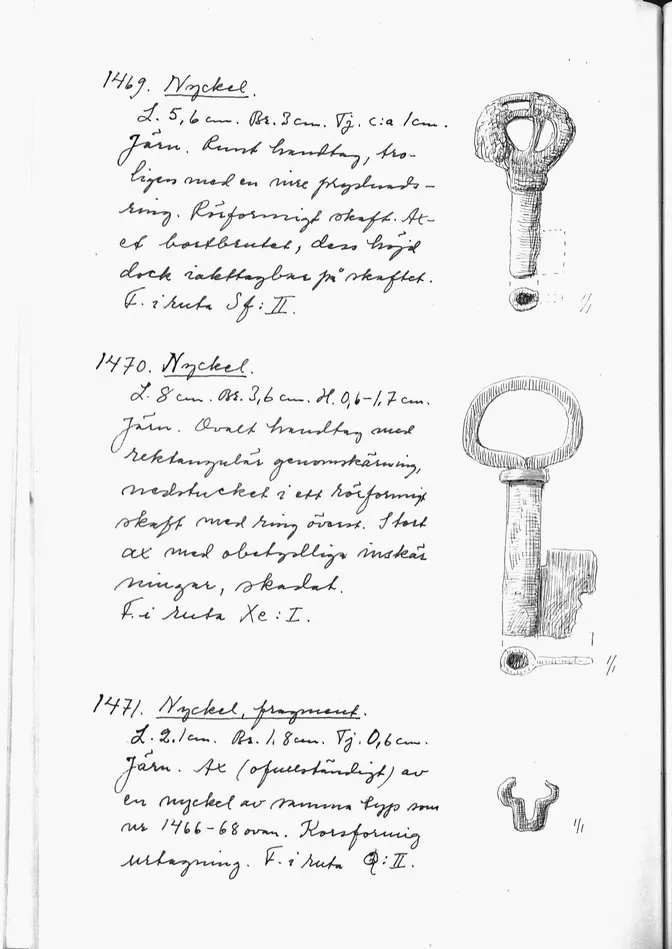 1469. Nyckel.
L. 5,6 cm. Br. 3 cm. Tj. c:a 1 cm.
Järn. Runt handtag, tro-
ligen med en inre prydnads-
ring. Rörformigt skaft. Ax-
et bortbrutet, dess höjd
dock iakttagbar på skaftet.
F. i ruta Sf: II.
1/1
1470. Nyckel.
L. 8 cm. Br. 3,6 cm. H. 0,6-1,7 cm.
Järn. Ovalt handtag med
rektangulär genomskärning,
nedstucket i ett rörformigt
skaft med ring överst. Stort
ax med obetydliga inskär
ningar, skadat.
F. i ruta Xc: I.
1/1
1471. Nyckel, fragment.
L. 2,1 cm. Br. 1,8 cm. Tj. 0,6 cm.
Järn. Ax (ofullständigt) av
en nyckel av samma typ som
nr 1466-68 ovan. Korsformig
urtagning. F. i ruta Q: II.
1/1